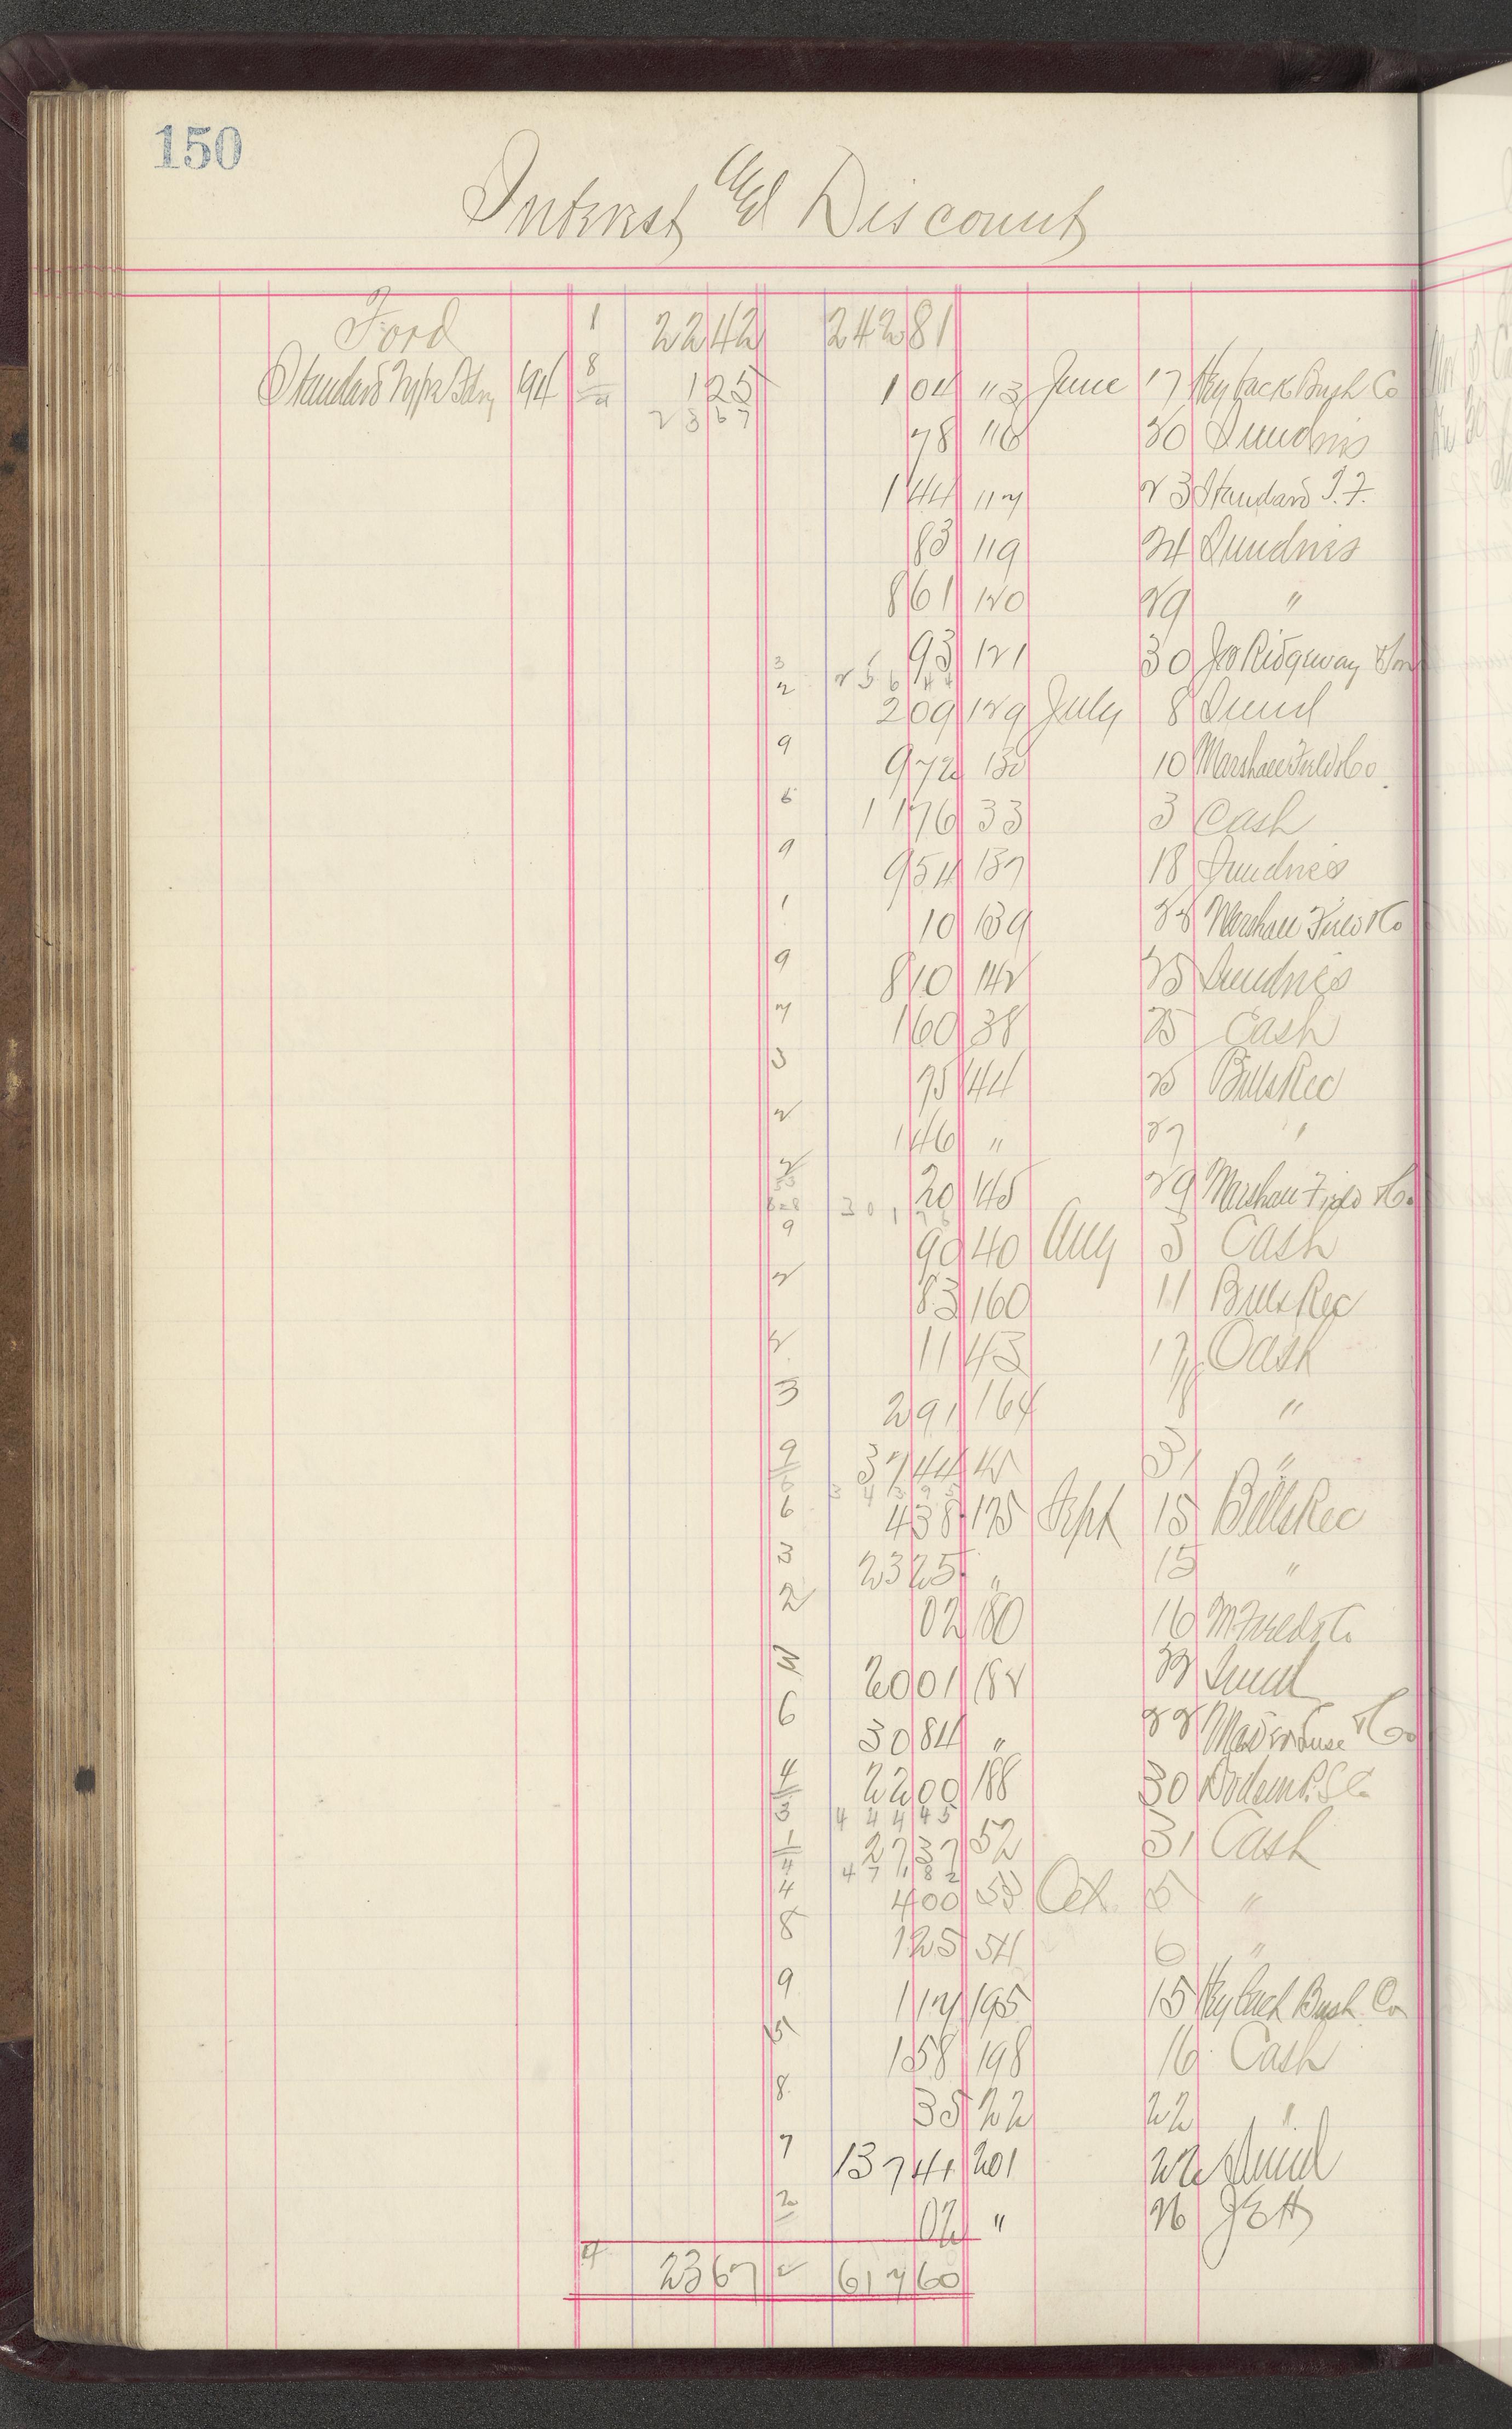 150
Interest and Discount
Ford 1 22 42 242 81
Standard Type Fdry 194 8 1 25 1 04 113 June 17
23 67
78 116 20 Sundries
1 44 117 23 Standard T. F.
83 119 24 Sundries
8 61 120 29 "
93 121 30 Jno Ridgway & Son
3 256 44
2 2 09 129 July 8 Sund
9 9 72 130 10 Marshall Field & Co.
6 11 76 33 3 Cash
9 9 54 137 18 Sundries
1 10 139 22 Marshall Field & Co
9 8 10 142 25 Sundries
7 1 60 38 25 Cash
3 75 144 25 Bills Rec
2 1 46 " 27 "
2 20 145 29 Marshall Field & Co.
301
9 90 40 Aug 3 Cash
2 83 160 11 Bills Rec
2 11 43 17 Cash
3 2 91 164 18 "
9 37 44 45 31 "
6 343 95
6 4 38 175 Sept 15 Bills Rec
3 23 25 " 15 "
2 02 180 16 M Field & Co
3 20 01 182 22 Sund
6 30 84 " 22 & Co
4 22 00 188 30
3 444 45
1 27 37 52 31 Cash
4 471 82
4 4 00 53 Oct 5 "
8 1 25 54 6 "
9 1 17 195 15
5 1 58 198 16 Cash
8 35 22 22 "
7 137 41 201 22 Sund
2 02 " 26 J E H
4 23 67 2 617 60